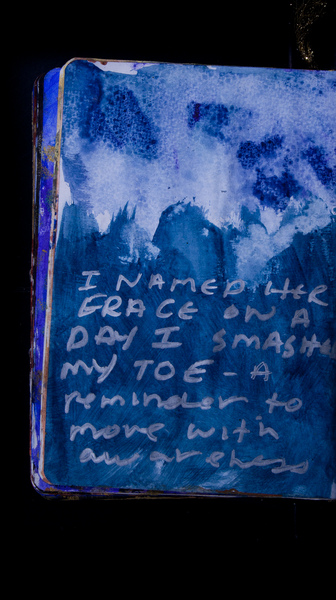 I NAMED HER
GRACE ON A
DAY I SMASH
MY TOE - A
reminder to
move with
awareness